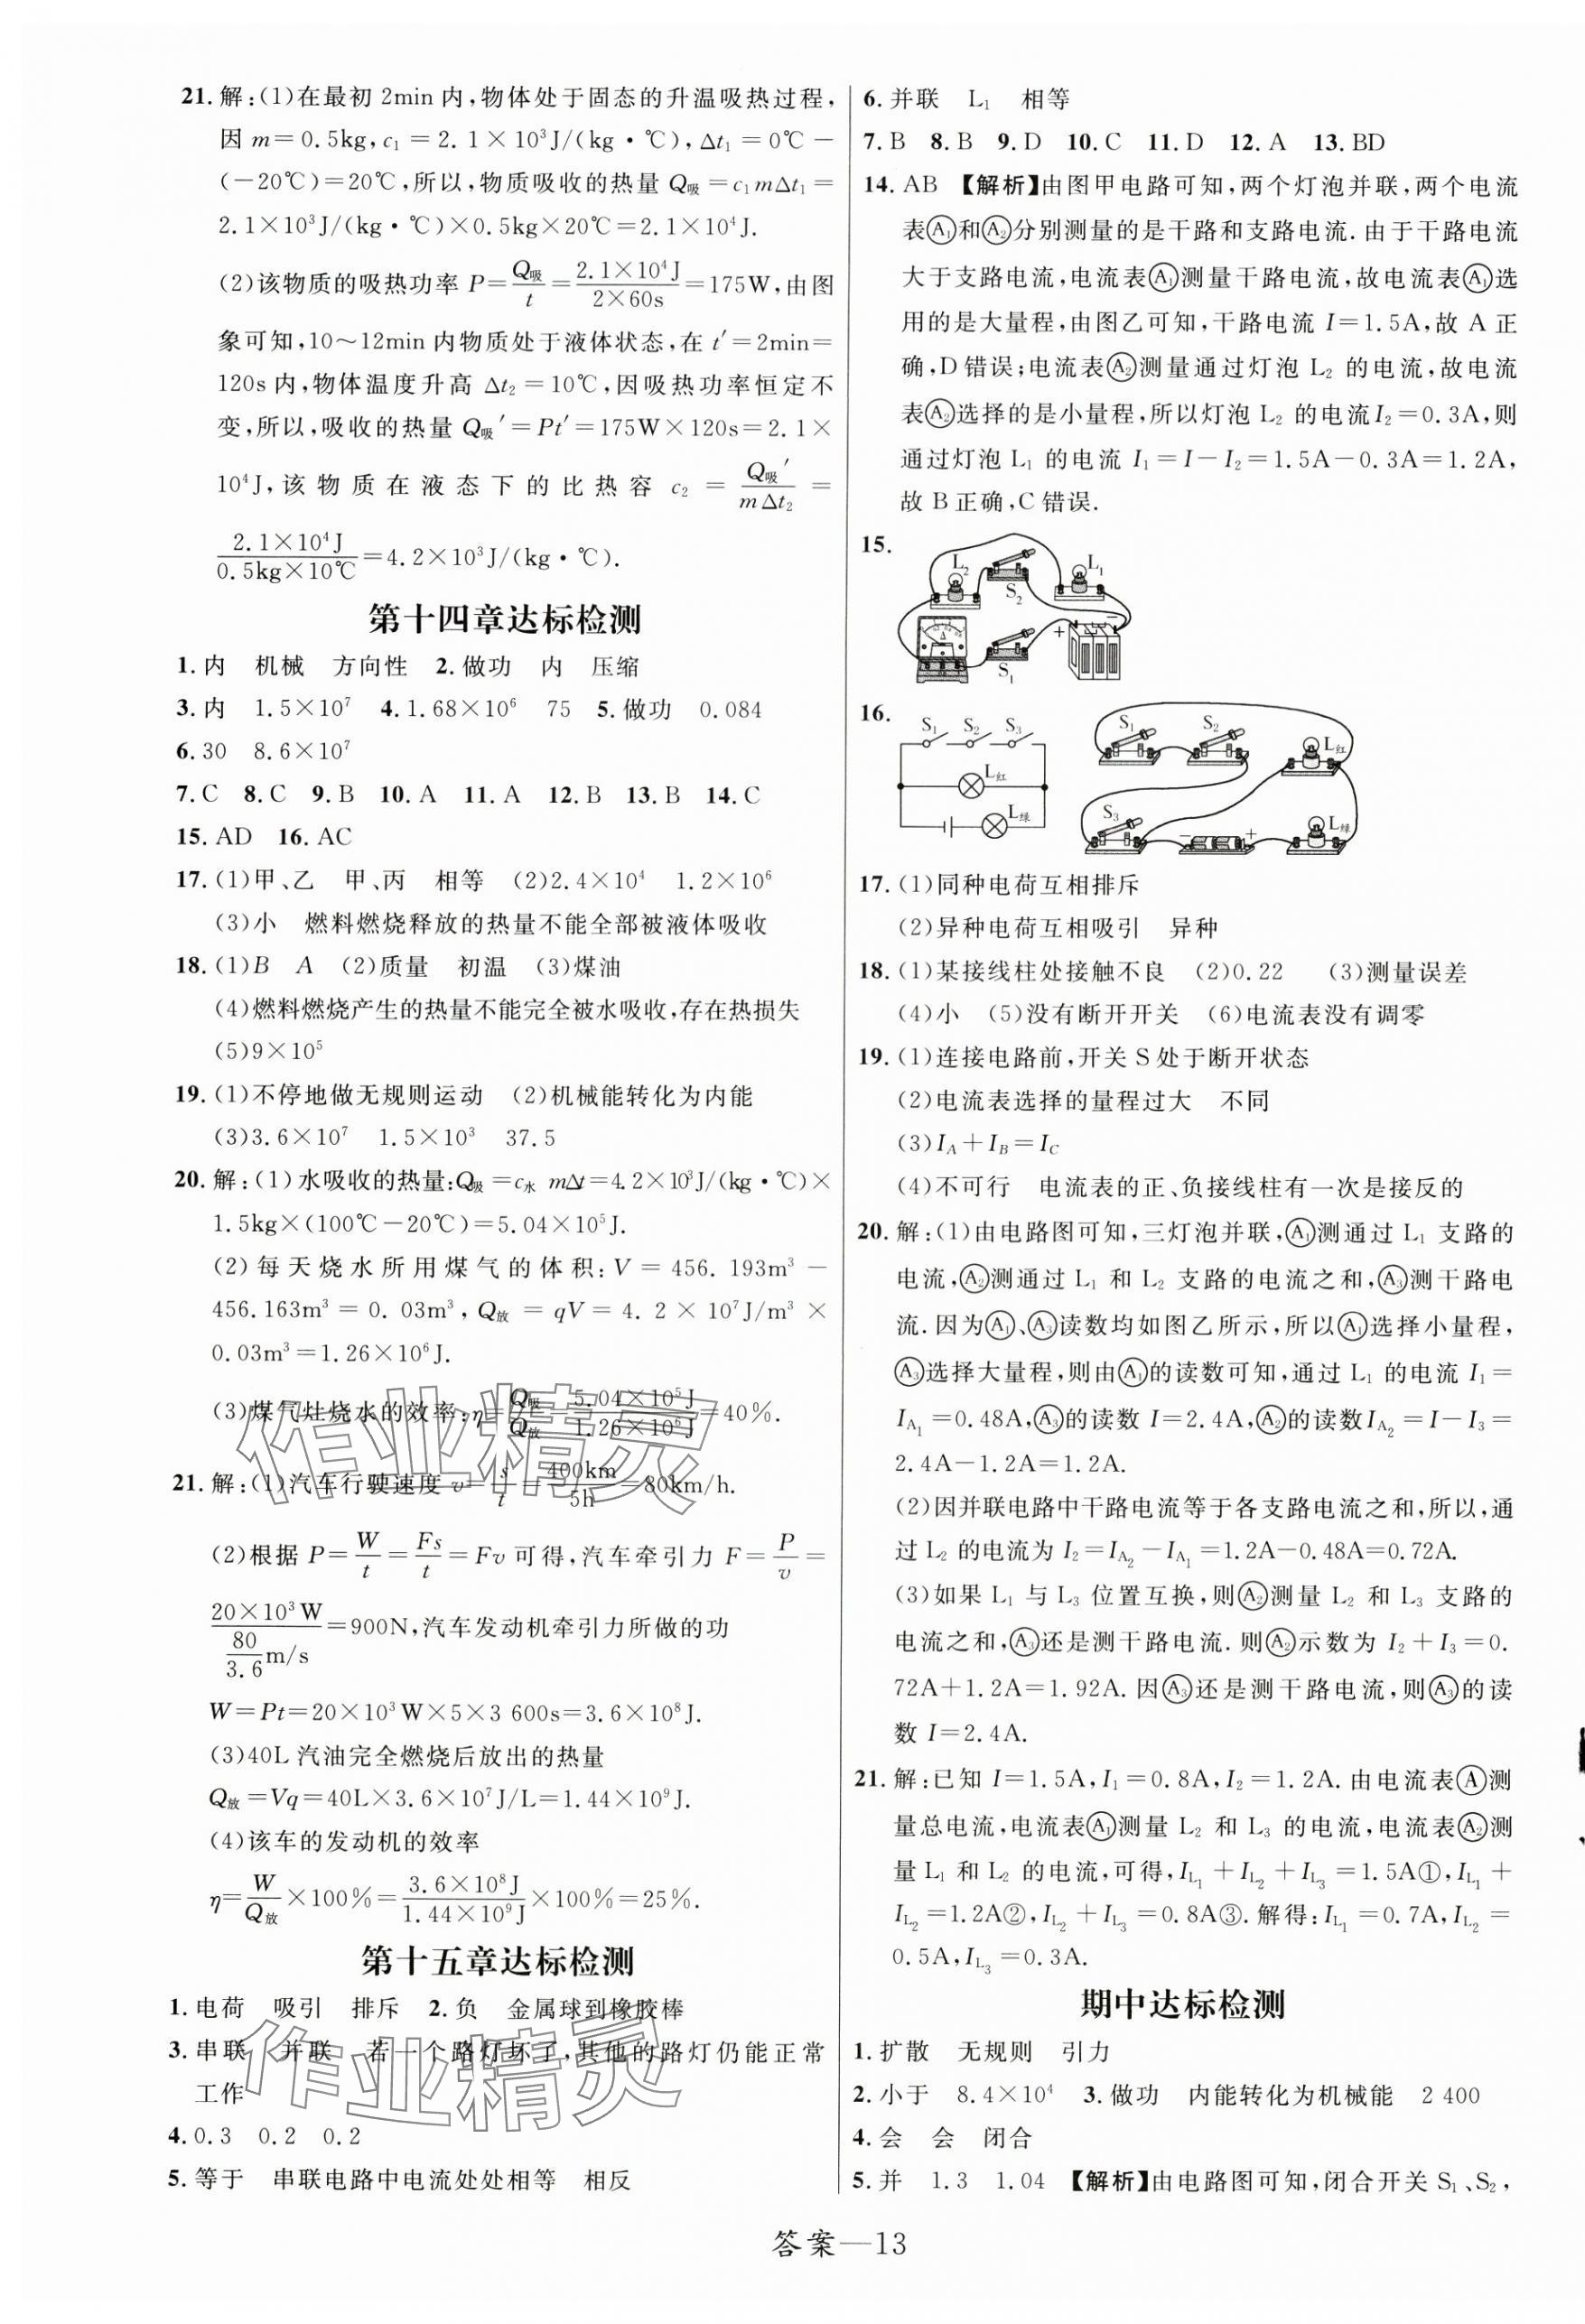 21. 解:(1)在最初 2min 内,物体处于固态的升温吸热过程,
因 m=0.5kg, c₁=2.1×10³J/(kg·℃), Δt₁=0℃-
(-20℃)=20℃,所以,物质吸收的热量 Q吸=c₁mΔt₁=
2.1×10³J/(kg·℃)×0.5kg×20℃=2.1×10⁴J.
(2)该物质的吸热功率 P=Q吸/t=2.1×10⁴J/2×60s=175W,由图
象可知,10~12min内物质处于液体状态,在 t′=2min=
120s内,物体温度升高 Δt₂=10℃,因吸热功率恒定不
变,所以,吸收的热量 Q吸′=Pt′=175W×120s=2.1×
10⁴J,该物质在液态下的比热容 c₂=Q吸′/mΔt₂=
2.1×10⁴J/0.5kg×10℃=4.2×10³J/(kg·℃).
第十四章达标检测
1. 内 机械 方向性 2. 做功 内 压缩
3. 内 1.5×10⁷ 4. 1.68×10⁶ 75 5. 做功 0.084
6. 30 8.6×10⁷
7. C 8. C 9. B 10. A 11. A 12. B 13. B 14. C
15. AD 16. AC
17. (1)甲、乙 甲、丙 相等 (2)2.4×10⁴ 1.2×10⁶
(3)小 燃料燃烧释放的热量不能全部被液体吸收
18. (1)B A (2)质量 初温 (3)煤油
(4)燃料燃烧产生的热量不能完全被水吸收,存在热损失
(5)9×10⁵
19. (1)不停地做无规则运动 (2)机械能转化为内能
(3)3.6×10⁷ 1.5×10³ 37.5
20. 解:(1)水吸收的热量:Q吸=c水mΔt=4.2×10³J/(kg·℃)×
1.5kg×(100℃-20℃)=5.04×10⁵J.
(2)每天烧水所用煤气的体积:V=456.193m³-
456.163m³=0.03m³, Q放=qV=4.2×10⁷J/m³×
0.03m³=1.26×10⁶J.
(3)煤气灶烧水的效率:η=Q吸/Q放=5.04×10⁵J/1.26×10⁶J=40%.
21. 解:(1)汽车行驶速度 v=s/t=400km/5h=80km/h.
(2)根据 P=W/t=Fs/t=Fv可得,汽车牵引力 F=P/v=
20×10³W/(80/3.6)m/s=900N,汽车发动机牵引力所做的功
W=Pt=20×10³W×5×3 600s=3.6×10⁸J.
(3)40L汽油完全燃烧后放出的热量
Q放=Vq=40L×3.6×10⁷J/L=1.44×10⁹J.
(4)该车的发动机的效率
η=W/Q放×100%=3.6×10⁸J/1.44×10⁹J×100%=25%.
第十五章达标检测
1. 电荷 吸引 排斥 2. 负 金属球到橡胶棒
3. 串联 并联 若一个路灯坏了,其他的路灯仍能正常
工作
4. 0.3 0.2 0.2
5. 等于 串联电路中电流处处相等 相反
6. 并联 L₁ 相等
7. B 8. B 9. D 10. C 11. D 12. A 13. BD
14. AB 【解析】由图甲电路可知,两个灯泡并联,两个电流
表Ⓐ₁和Ⓐ₂分别测量的是干路和支路电流.由于干路电流
大于支路电流,电流表Ⓐ₁测量干路电流,故电流表Ⓐ₁选
用的是大量程,由图乙可知,干路电流 I=1.5A,故 A 正
确,D错误;电流表Ⓐ₂测量通过灯泡 L₂ 的电流,故电流
表Ⓐ₂选择的是小量程,所以灯泡 L₂ 的电流I₂=0.3A,则
通过灯泡 L₁ 的电流 I₁=I-I₂=1.5A-0.3A=1.2A,
故 B正确,C错误.
15.
L₂ S₂ L₁
A S₁ + −
16.
S₁ S₂ S₃ L红 L绿
S₁ S₂ L红 S₃ − + L绿
17. (1)同种电荷互相排斥
(2)异种电荷互相吸引 异种
18. (1)某接线柱处接触不良 (2)0.22 (3)测量误差
(4)小 (5)没有断开开关 (6)电流表没有调零
19. (1)连接电路前,开关S处于断开状态
(2)电流表选择的量程过大 不同
(3)I_A+I_B=I_C
(4)不可行 电流表的正、负接线柱有一次是接反的
20. 解:(1)由电路图可知,三灯泡并联,Ⓐ₁测通过 L₁ 支路的
电流,Ⓐ₂测通过 L₁ 和 L₂ 支路的电流之和,Ⓐ₃测干路电
流.因为Ⓐ₁、Ⓐ₃读数均如图乙所示,所以Ⓐ₁选择小量程,
Ⓐ₃选择大量程,则由Ⓐ₁的读数可知,通过 L₁ 的电流 I₁=
I_A₁=0.48A,Ⓐ₃的读数 I=2.4A,Ⓐ₂的读数I_A₂=I-I₃=
2.4A-1.2A=1.2A.
(2)因并联电路中干路电流等于各支路电流之和,所以,通
过L₂ 的电流为 I₂=I_A₂-I_A₁=1.2A-0.48A=0.72A.
(3)如果 L₁ 与 L₃ 位置互换,则Ⓐ₂测量 L₂ 和 L₃ 支路的
电流之和,Ⓐ₃还是测干路电流.则Ⓐ₂示数为 I₂+I₃=0.
72A+1.2A=1.92A.因Ⓐ₃还是测干路电流,则Ⓐ₃的读
数 I=2.4A.
21. 解:已知 I=1.5A, I₁=0.8A, I₂=1.2A.由电流表Ⓐ测
量总电流,电流表Ⓐ₁测量 L₂ 和 L₃ 的电流,电流表Ⓐ₂测
量L₁ 和 L₂ 的电流,可得,I_L₁+I_L₂+I_L₃=1.5A①,I_L₁+
I_L₂=1.2A②,I_L₂+I_L₃=0.8A③.解得:I_L₁=0.7A,I_L₂=
0.5A,I_L₃=0.3A.
期中达标检测
1. 扩散 无规则 引力
2. 小于 8.4×10⁴ 3. 做功 内能转化为机械能 2 400
4. 会 会 闭合
5. 并 1.3 1.04 【解析】由电路图可知,闭合开关 S₁、S₂,
答案—13
作业精灵
作业精灵